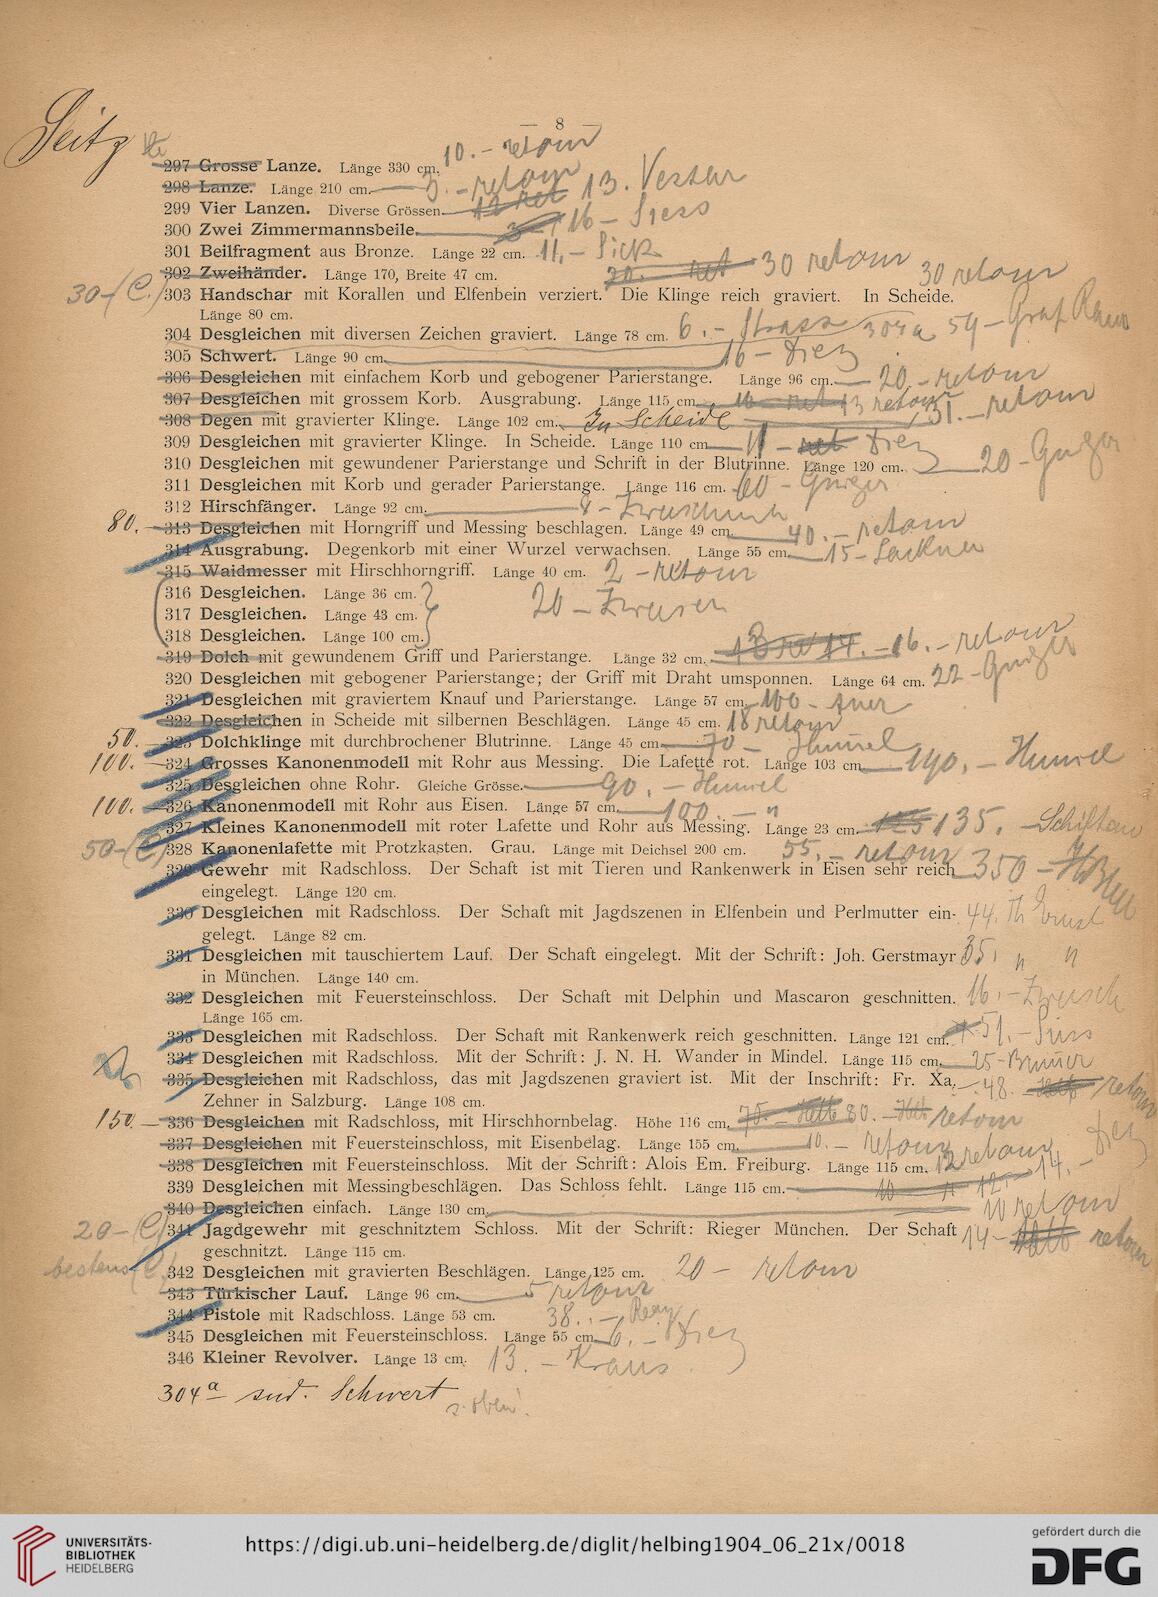 Seitz
— 8 —
297 Grosse Lanze. Länge 330 cm. 10.- retour
298 Lanze. Länge 210 cm. 5.- retour
299 Vier Lanzen. Diverse Grössen. 12 ret 13.
300 Zwei Zimmermannsbeile. 16-
301 Beilfragment aus Bronze. Länge 22 cm. 11.- Sick
302 Zweihänder. Länge 170, Breite 47 cm. 20. ret 30 retour 30 retour
30-(C.) 303 Handschar mit Korallen und Elfenbein verziert. Die Klinge reich graviert. In Scheide.
Länge 80 cm.
304 Desgleichen mit diversen Zeichen graviert. Länge 78 cm. 6.- Strass 304a 59- Graf
305 Schwert. Länge 90 cm. 16- Diez
306 Desgleichen mit einfachem Korb und gebogener Parierstange. Länge 96 cm. 20.- retour
307 Desgleichen mit grossem Korb. Ausgrabung. Länge 115 cm. ret 13 retour
308 Degen mit gravierter Klinge. Länge 102 cm. In Scheide 31.- retour
309 Desgleichen mit gravierter Klinge. In Scheide. Länge 110 cm. 11- ret Diez
310 Desgleichen mit gewundener Parierstange und Schrift in der Blutrinne. Länge 120 cm. 20-
311 Desgleichen mit Korb und gerader Parierstange. Länge 116 cm. 60-
312 Hirschfänger. Länge 92 cm. 8-
80.- 313 Desgleichen mit Horngriff und Messing beschlagen. Länge 49 cm. 40.- retour
314 Ausgrabung. Degenkorb mit einer Wurzel verwachsen. Länge 55 cm. 15- Lackner
315 Waidmesser mit Hirschhorngriff. Länge 40 cm. 2- retour
316 Desgleichen. Länge 36 cm.
317 Desgleichen. Länge 43 cm. 20-
318 Desgleichen. Länge 100 cm.
319 Dolch mit gewundenem Griff und Parierstange. Länge 32 cm. 16.- retour
320 Desgleichen mit gebogener Parierstange; der Griff mit Draht umsponnen. Länge 64 cm. 22-
321 Desgleichen mit graviertem Knauf und Parierstange. Länge 57 cm. 100-
322 Desgleichen in Scheide mit silbernen Beschlägen. Länge 45 cm. 18 retour
50.- 323 Dolchklinge mit durchbrochener Blutrinne. Länge 45 cm. 70- Himmel
100.- 324 Grosses Kanonenmodell mit Rohr aus Messing. Die Lafette rot. Länge 103 cm. 190.- Himmel
325 Desgleichen ohne Rohr. Gleiche Grösse. 90.- Himmel
100.- 326 Kanonenmodell mit Rohr aus Eisen. Länge 57 cm. 100.- "
327 Kleines Kanonenmodell mit roter Lafette und Rohr aus Messing. Länge 23 cm. 125 135.
50-(C) 328 Kanonenlafette mit Protzkasten. Grau. Länge mit Deichsel 200 cm. 55.- retour
329 Gewehr mit Radschloss. Der Schaft ist mit Tieren und Rankenwerk in Eisen sehr reich 350-
eingelegt. Länge 120 cm.
330 Desgleichen mit Radschloss. Der Schaft mit Jagdszenen in Elfenbein und Perlmutter ein- 44. Th Ernst
gelegt. Länge 82 cm.
331 Desgleichen mit tauschiertem Lauf. Der Schaft eingelegt. Mit der Schrift: Joh. Gerstmayr 35. " "
in München. Länge 140 cm.
332 Desgleichen mit Feuersteinschloss. Der Schaft mit Delphin und Mascaron geschnitten. 16.-
Länge 165 cm.
333 Desgleichen mit Radschloss. Der Schaft mit Rankenwerk reich geschnitten. Länge 121 cm. 51.-
334 Desgleichen mit Radschloss. Mit der Schrift: J. N. H. Wander in Mindel. Länge 115 cm. 25-
335 Desgleichen mit Radschloss, das mit Jagdszenen graviert ist. Mit der Inschrift: Fr. Xa. 48. retour
Zehner in Salzburg. Länge 108 cm.
150.- 336 Desgleichen mit Radschloss, mit Hirschhornbelag. Höhe 116 cm. 75.- 80.- retour
337 Desgleichen mit Feuersteinschloss, mit Eisenbelag. Länge 155 cm. 10.- retour
338 Desgleichen mit Feuersteinschloss. Mit der Schrift: Alois Em. Freiburg. Länge 115 cm. 12 retour
339 Desgleichen mit Messingbeschlägen. Das Schloss fehlt. Länge 115 cm. 10 12.- 14.- Diez
340 Desgleichen einfach. Länge 130 cm. 10 retour
20-(C) 341 Jagdgewehr mit geschnitztem Schloss. Mit der Schrift: Rieger München. Der Schaft 14- retour
geschnitzt. Länge 115 cm.
bestens (C) 342 Desgleichen mit gravierten Beschlägen. Länge 125 cm. 20- retour
343 Türkischer Lauf. Länge 96 cm. 5 retour
344 Pistole mit Radschloss. Länge 53 cm. 38.-
345 Desgleichen mit Feuersteinschloss. Länge 55 cm. 6.- Diez
346 Kleiner Revolver. Länge 13 cm. 13.- Kraus
304a Schwert s. oben!
UNIVERSITÄTS-
BIBLIOTHEK
HEIDELBERG
https://digi.ub.uni-heidelberg.de/diglit/helbing1904_06_21x/0018
gefördert durch die
DFG